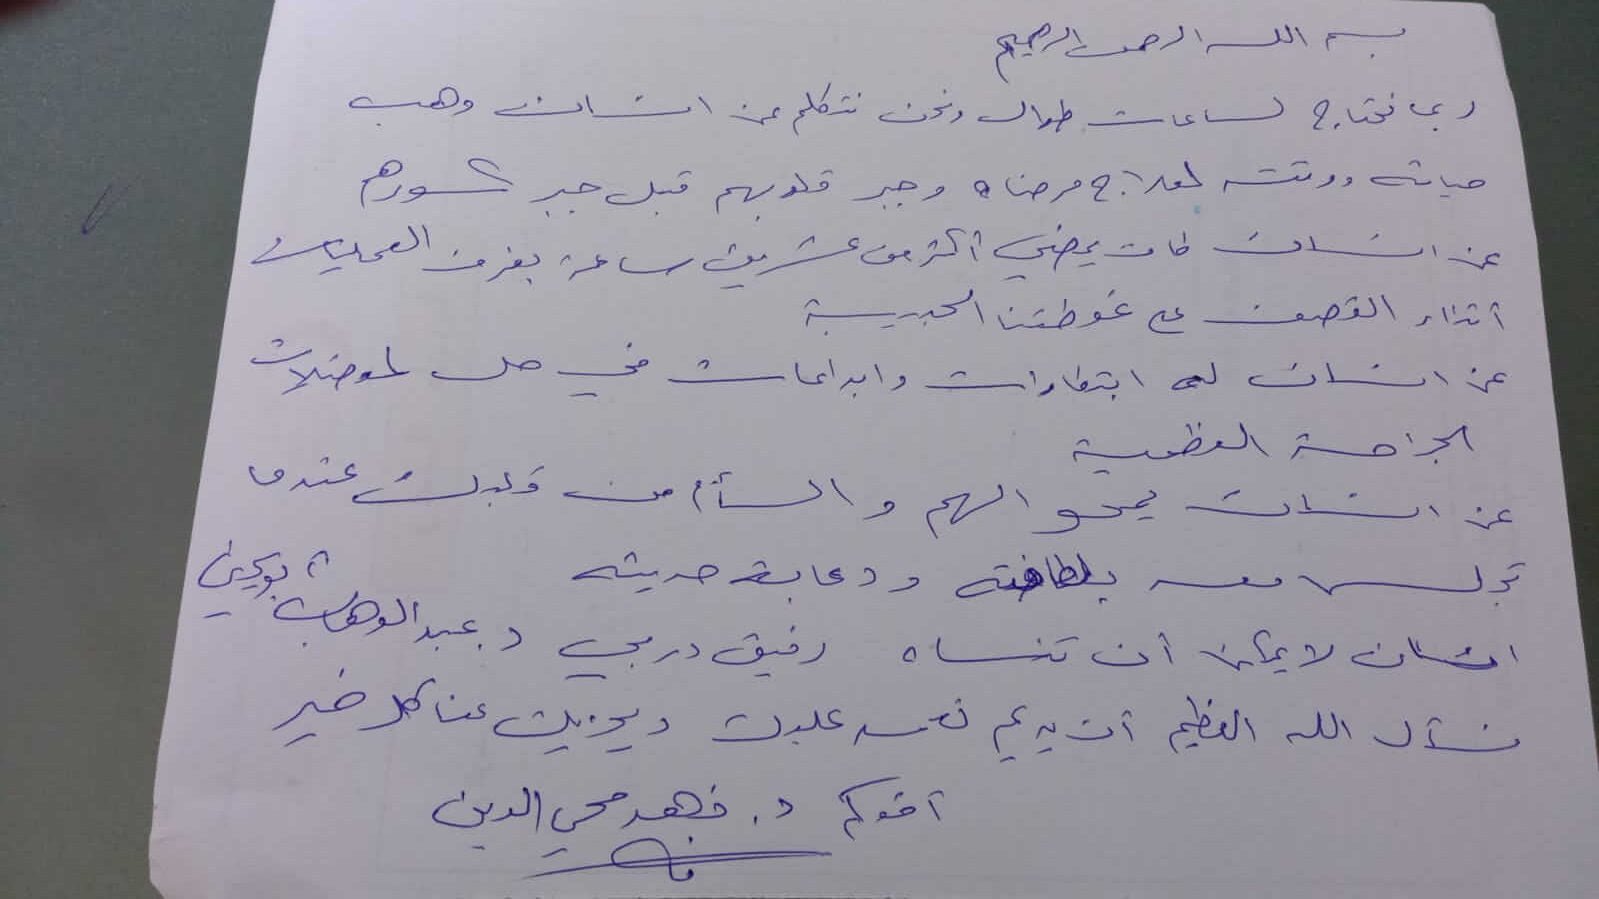 بسم الله الرحمن الرحيم
ربما نحتاج لساعات طوال ونحن نتكلم عن انسان وهب
حياته ووقته لعلاج مرضاه وجبر قلوبهم قبل جبر كسورهم
عن انسان كان يمضي أكثر من عشرين ساعة بغرف العمليات
أثناء القصف على غوطتنا الحبيبة
عن انسان له ابتكارات وابداعات في حل لمعضلات
الجراحة العظمية
عن انسان يمحو الهم والسأم من قلبك عندما
تجلس معه بلطافته ودعابة حديثه
انسان لا يمكن أن تنساه رفيق دربي د. عبد الوهاب أبو يحيى
نسأل الله العظيم أن يديم نعمه عليك ويجزيك عنا كل خير
أخوكم د. فهد محي الدين